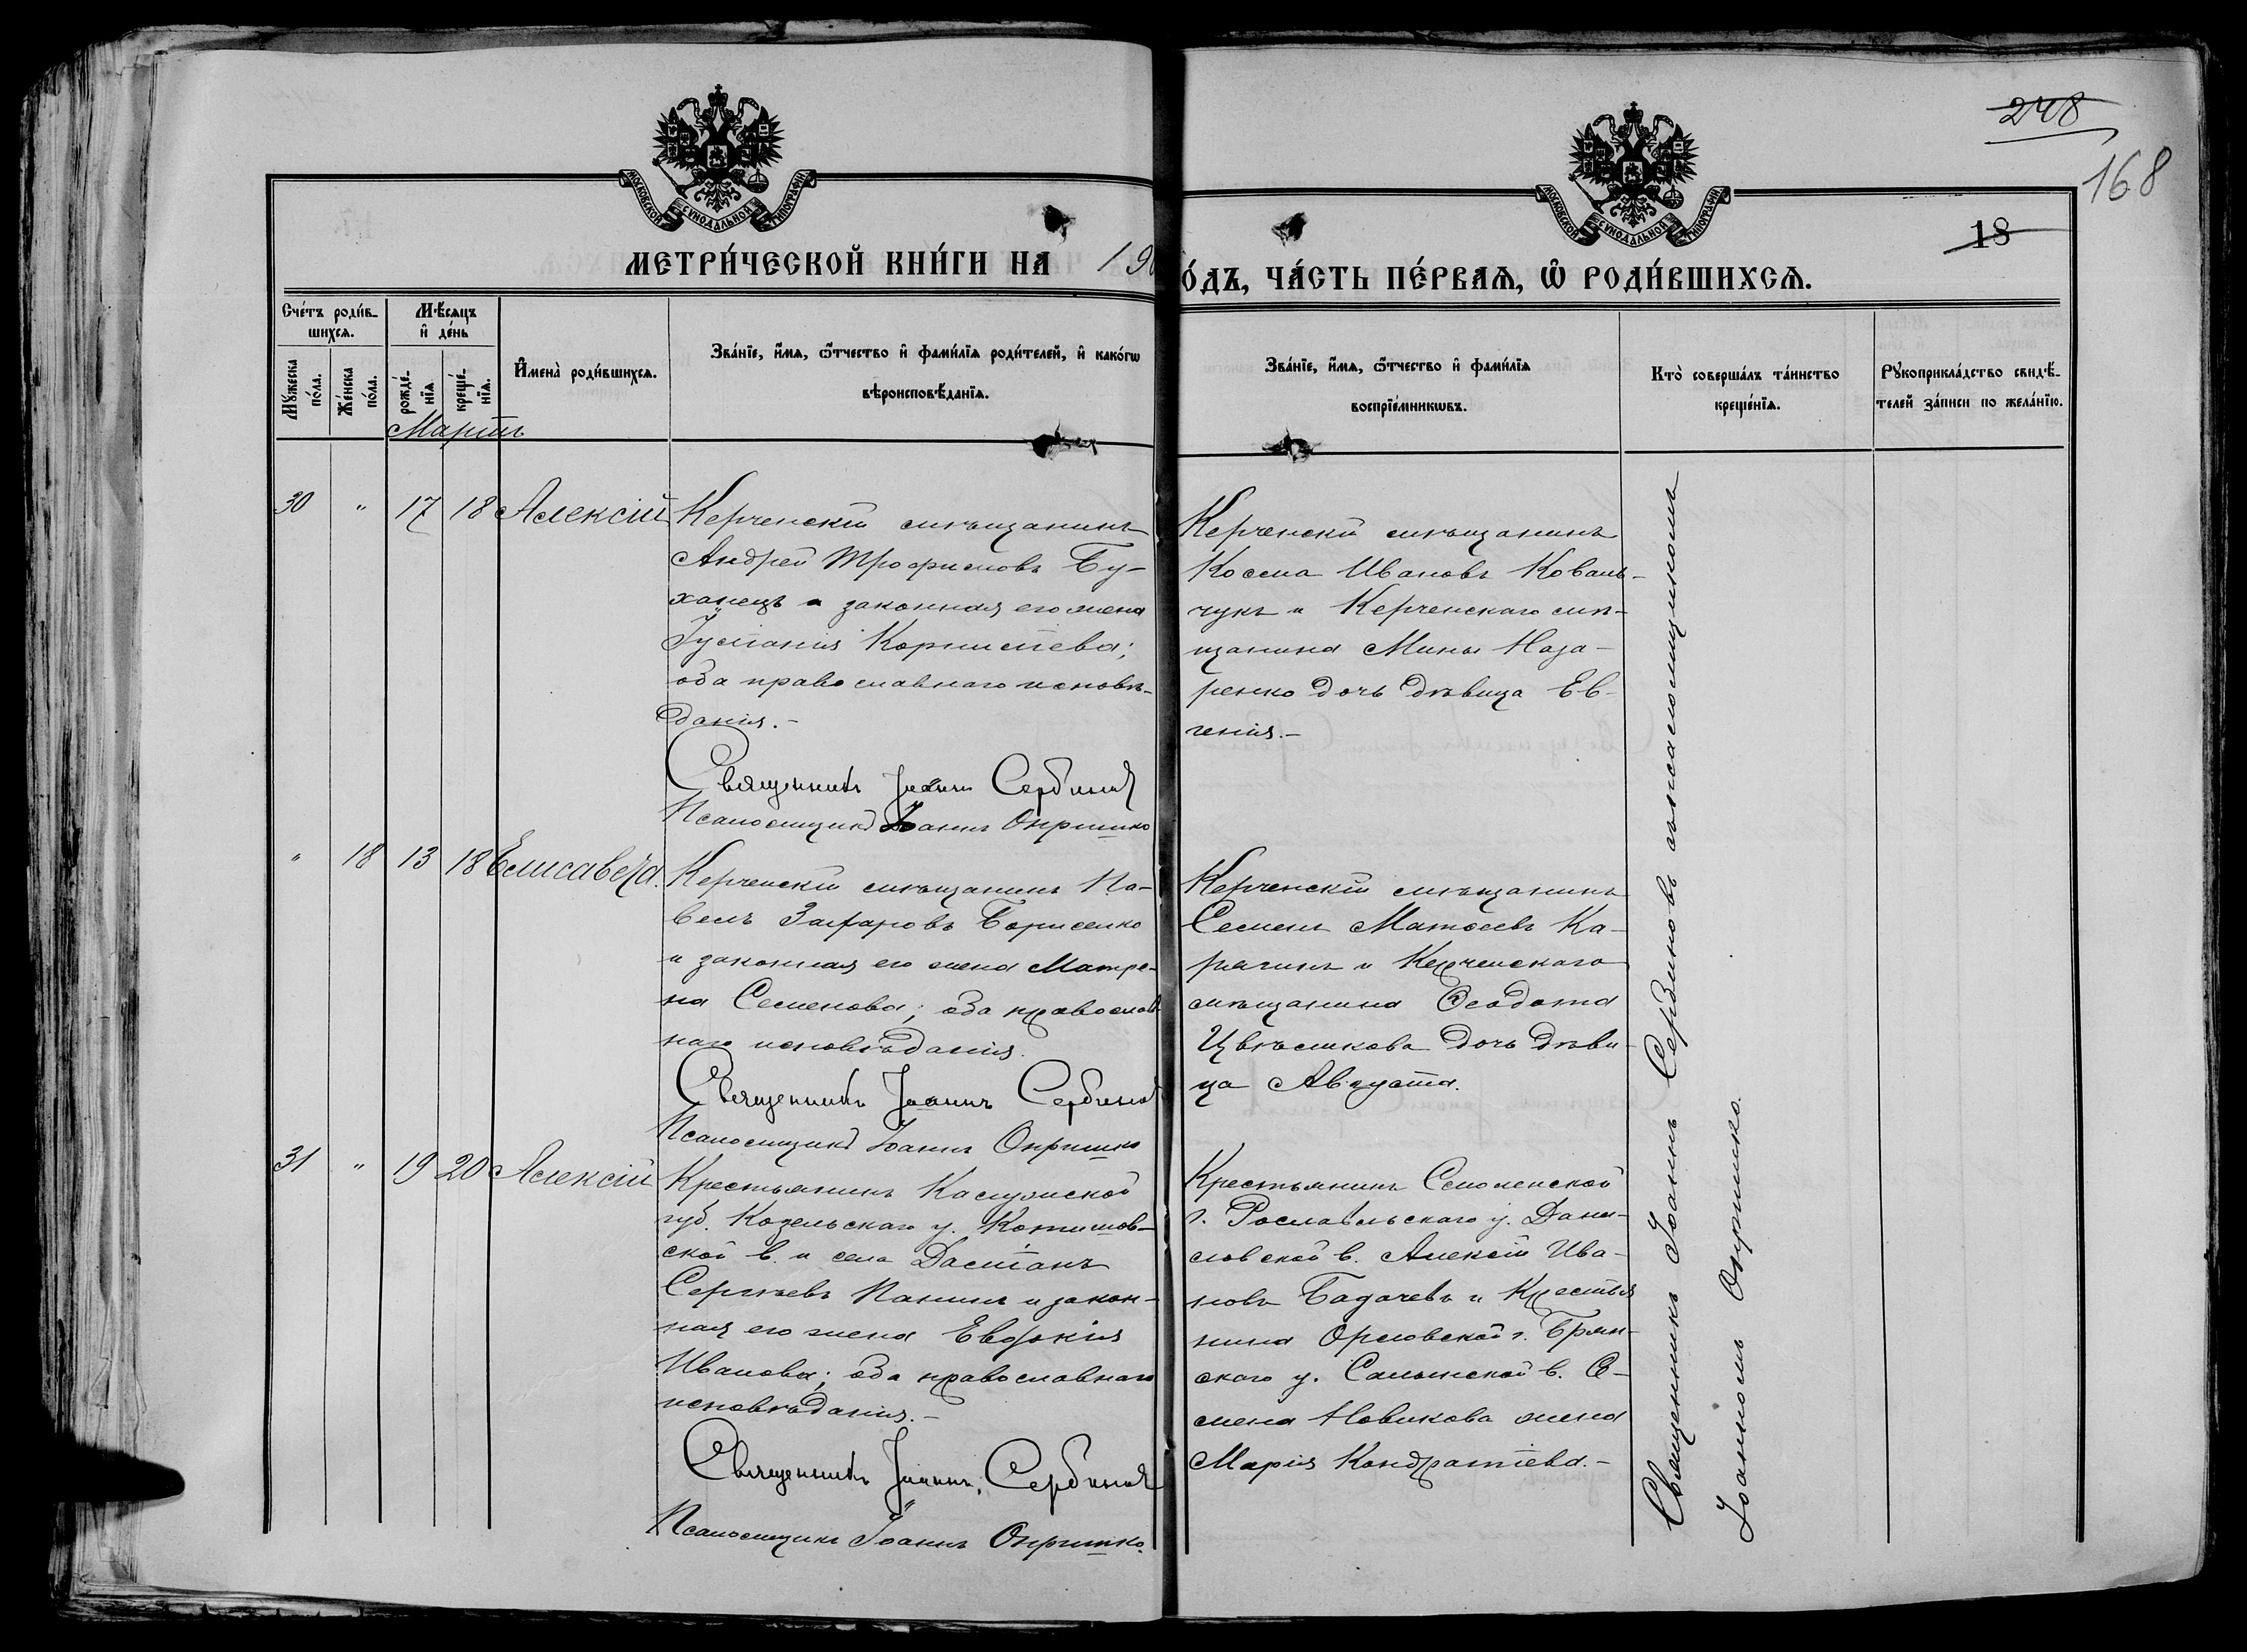 248
168
18
МОСКОВСКОЙ СѴНОДАЛЬНОЙ ТИПОГРАФІИ
МОСКОВСКОЙ СѴНОДАЛЬНОЙ ТИПОГРАФІИ
МЕТРИ́ЧЕСКОЙ КНИ́ГИ НА 19
О́ДЪ, ЧА́СТЬ ПЕ́РВАѦ, Ѡ҆ РОДИ́ВШИХСѦ.
Сче́тъ роди́в-
шихсѧ.
Мꙋ́жеска
по́ла.
Же́нска
по́ла.
Мѣ́сѧцъ
и҆ де́нь
рожде́-
нїѧ
креще́-
нїѧ.
И҆мена̀ роди́вшихсѧ.
Зва́нїе, и҆́мѧ, ѻ҆́тчество и҆ фами́лїѧ роди́телей, и҆ како́гѡ
вѣроисповѣ́данїѧ.
Зва́нїе, и҆́мѧ, ѻ҆́тчество и҆ фами́лїѧ
воспрїе́мникѡвъ.
Кто̀ соверша́лъ та́инство
креще́нїѧ.
Рꙋкоприкла́дство свидѣ́-
телей за́писи по жела́нїю.
Мартъ
30 " 17 18 Алексій
Керченскій мѣщанинъ
Андрей Трофимовъ Бу-
ханецъ и законная его жена
Іустинія Корнилiева;
оба православнаго исповѣ-
данія.-
Священникъ Іоаннъ Сербиновъ
Псаломщикъ Іоаннъ Онришко
Керченскій мѣщанинъ
Косма Ивановъ Коваль-
чукъ и Керченскаго мѣ-
щанина Мины Наза-
ренко дочь дѣвица Ев-
генія.-
" 18 13 18 Елисавета.
Керченскій мѣщанинъ Па-
велъ Захаровъ Борисенко
и законная его жена Матре-
на Семенова; оба православ-
наго исповѣданія.
Священникъ Іоаннъ Сербиновъ
Псаломщикъ Іоаннъ Онришко
Керченскій мѣщанинъ
Семенъ Матвеевъ Ка-
рягинъ и Керченскаго
мѣщанина Ѳеодота
Цвѣткова дочь дѣви-
ца Августа.
31 " 19 20 Алексій
Крестьянинъ Калужской
губ. Козельскаго у. Котинов-
ской в. и села
Сергѣевъ Панинъ и закон-
ная его жена Евдокія
Иванова; оба православнаго
исповѣданія.-
Священникъ Іоаннъ Сербиновъ
Псаломщикъ Іоаннъ Онришко.
Крестьянинъ Смоленской
г. Рославльскаго у. Дани-
ловской в. Алексій Ива-
новъ Бадачевъ и Крестья
нина Орловской г. Брян-
скаго у. Салынской в. Се-
мена Новикова жена
Марія Кондратіева.-
Священникъ Іоаннъ Сербиновъ съ псаломщикомъ
Іоанномъ Онришко.